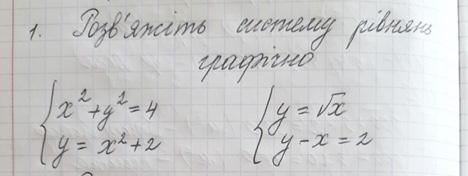 1. Розв'яжіть систему рівнянь
графічно
{ x² + y² = 4
y = x² + 2
{ y = √x
y - x = 2